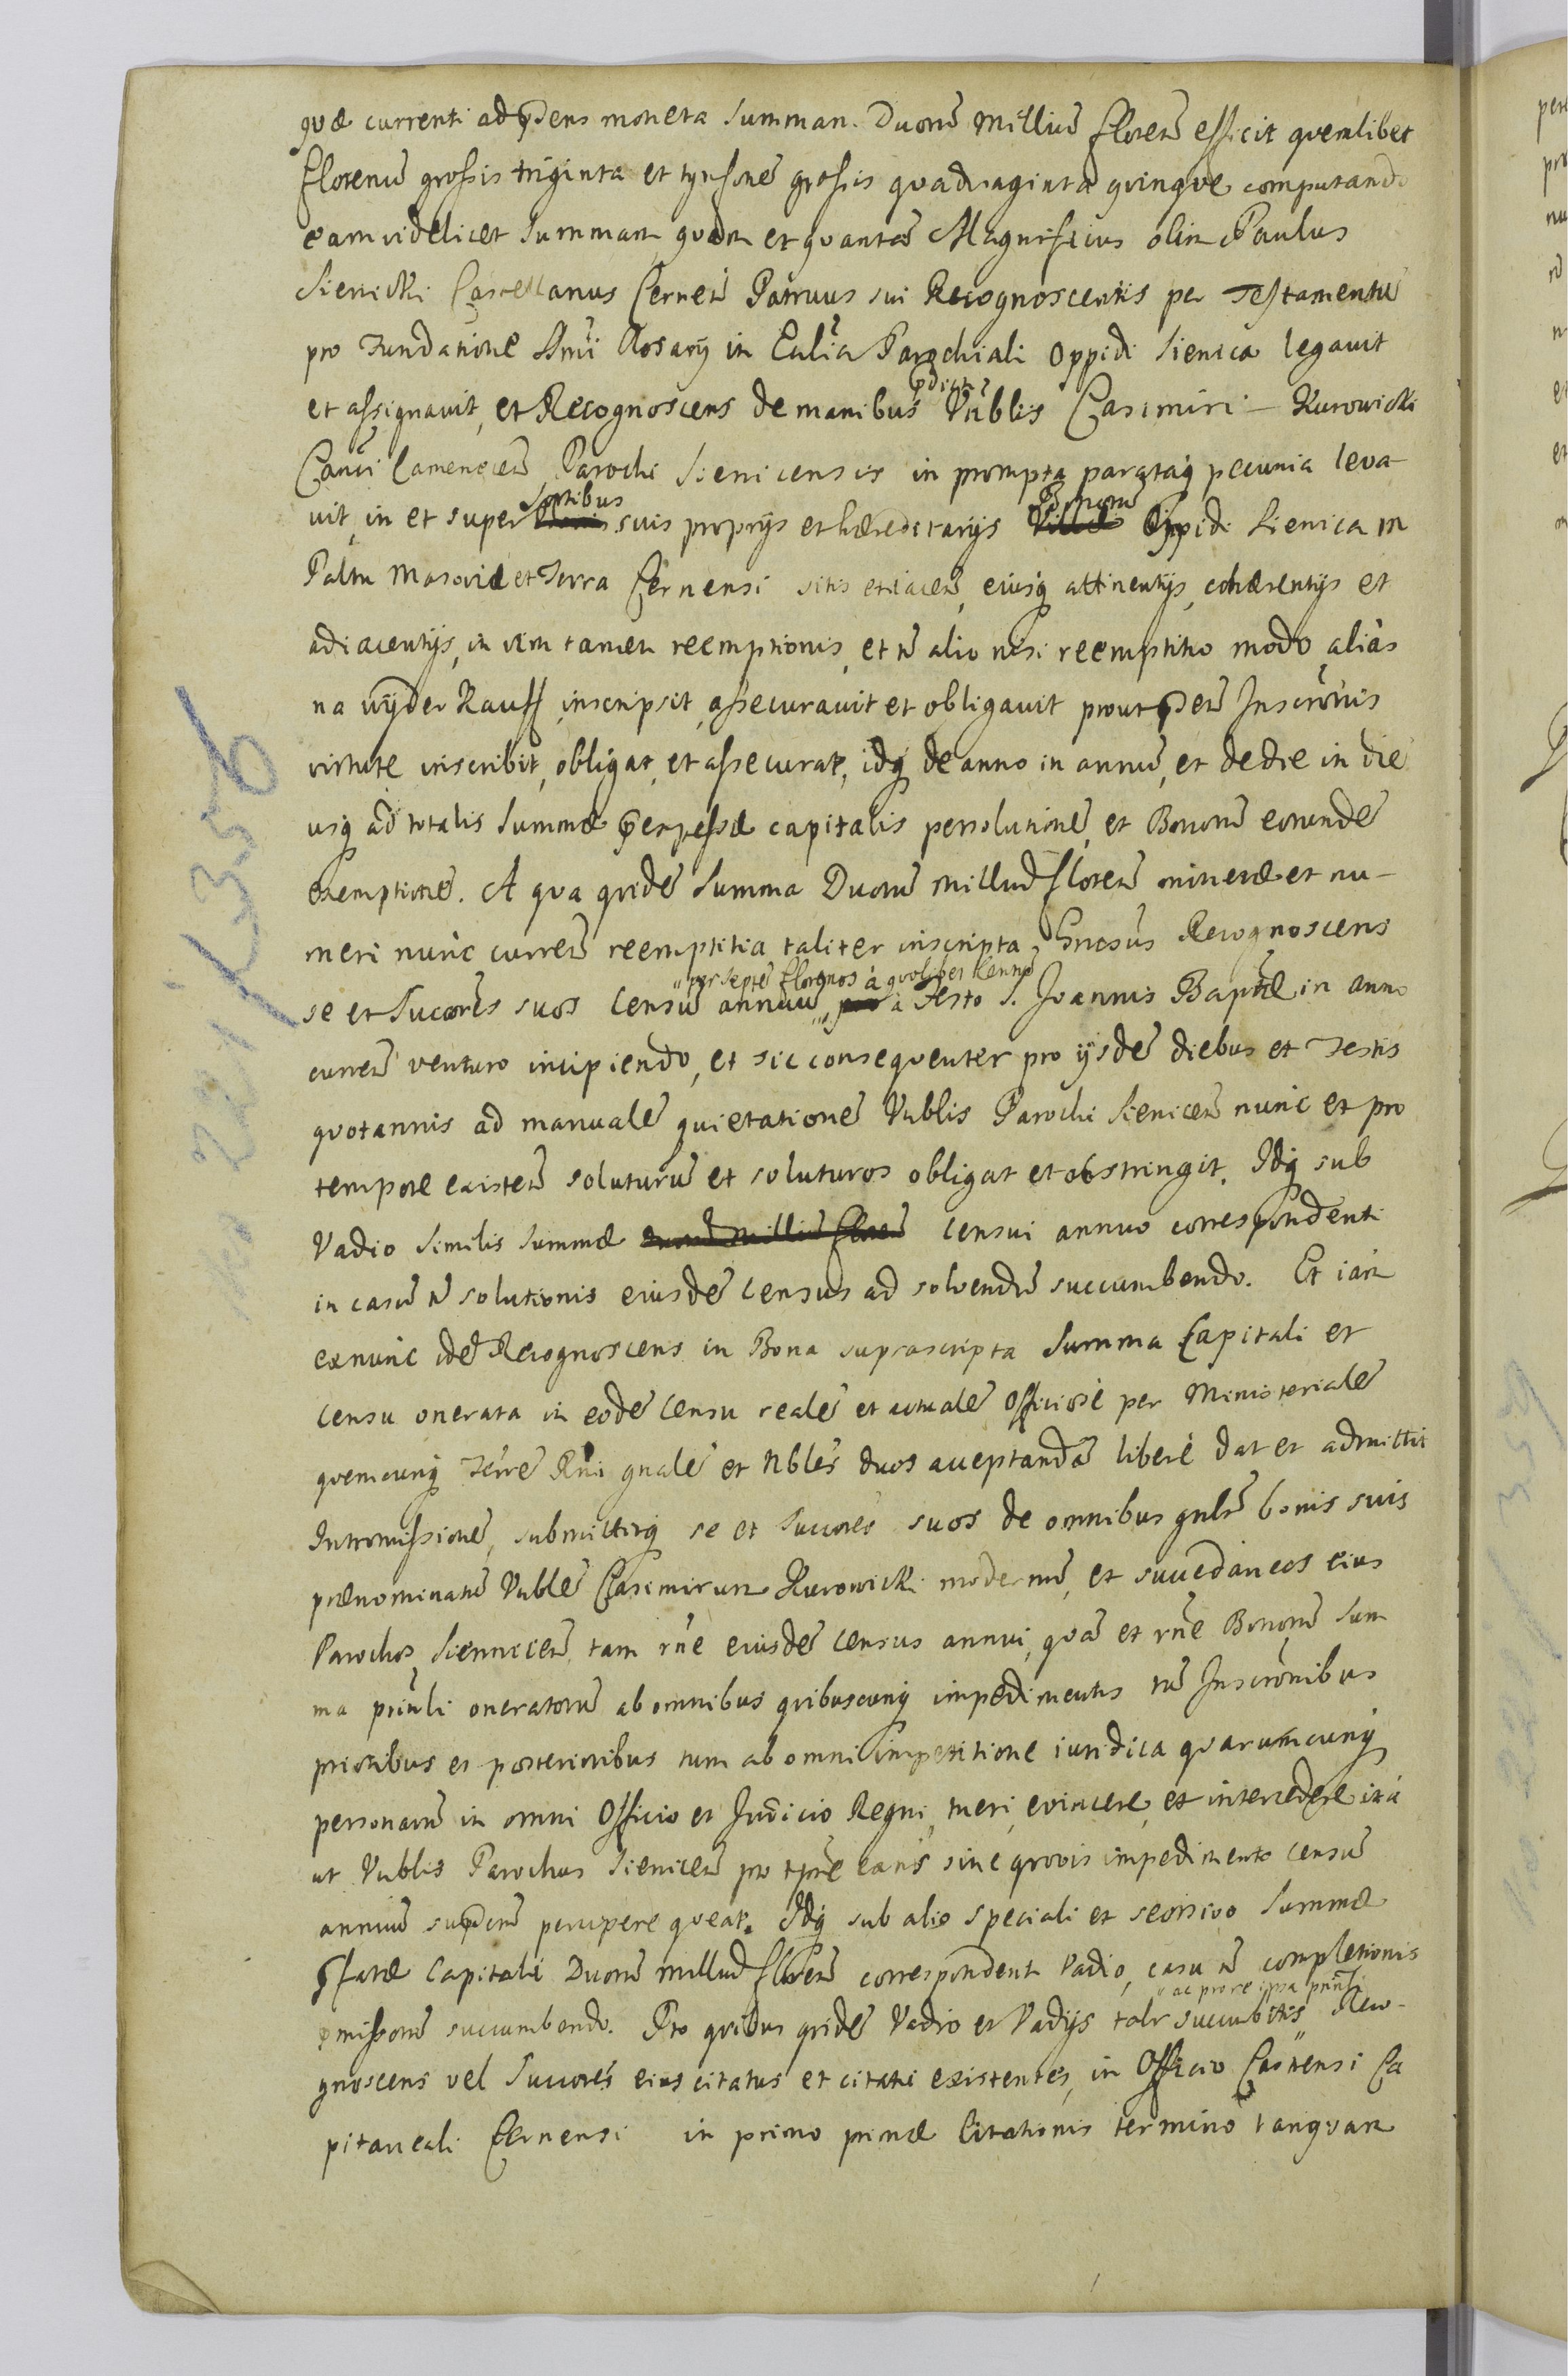 quæ currenti ad pñdens moneta summam Duorũ Milliũ florerũ efficit quemlibet
florenũ grossis triginta et tynfonẽ grossis quadraginta quinque computando
eam videlicet summam quam et quantã Magnificus olim Paulus
Sienicki Castellanus Cernen̄ Patruus sui Recognoscentis per Testamentũ
pro Fundatione Ssmi Rosarij in Ecclia Parochiali Oppidi Sienica legavit
et assignavit, et Recognoscens de manibus Vñblis Casimiri Kurowicki
pdicti
Canci Camenecen̄ Parochi Sienicensis in prompta parataq̃ pecunia leva-
vit, in et super suis proprijs et hæreditarijs Oppidi Sienica in
Sortibus Bonorũ
Paltu Masoviæ et Terra Cernensi sitis et iacen̄, eiusq̃ attinentijs, cohærentijs et
adiacentijs, in vim tamen reemptionis, et nõ alio nisi reemptitio modo, aliàs
na wÿderkauff inscripsit, assecuravit et obligavit prout pñden̄ Inscrõnis
virtute inscribit, obligat, et assecurat, idq̃ de anno in annũ, et de die in diẽ
usq̃ ad totalis summæ pexpressæ capitalis persolutionẽ, et Bonorũ eorundẽ
exemptionẽ. A qua quidẽ summa Duorũ millium floren̄ monetæ et nu-
meri nunc curren̄ reemptitia taliter inscripta, Gñosus Recognoscens
se et Succores suos Censũ annuũ, à Festo S. Joannis Baptæ in anno
per septẽ florenos à quolibet Centno
curren̄ venturo incipiendo, et sic consequenter pro ijsdẽ diebus et Festis
quotannis ad manualẽ quietationẽ Vñblis Parochi Sienicen̄ nunc et pro
tempore existen̄ soluturũ et soluturos obligat et obstringit. Idq̃ sub
Vadio similis summæ duorũ milliũ floren̄ Censui annuo correspondenti
in casũ nõ solutionis eiusdẽ Census ad solvendũ succumbendo. Et iam
exnunc idẽ Recognoscens in Bona suprascripta Summa Capitali et
Censu onerata in eodẽ Censu realẽ et actualẽ Officiosè per Ministerialẽ
quemcunq̃ Terrẽ Rñi gñalẽ et Nbles duos acceptandã liberè dat et admittit
Intromissionẽ, submittitq̃ se et Succores suos de omnibus gñlr̃ bonis suis
prænominatũ Vñblẽ Casimirum Kurowicki modernũ, et succedaneos eius
Parochos Siennicen̄ tam rñe eiusdẽ Census annui, quã et rñe Bonorũ Sum
ma prinĉli oneratorũ ab omnibus quibuscunq̃ impedimentis tũ Inscrõnibus
prioribus et posterioribus tum ab omni impetitione iuridica quarumcunq̃
personarũ in omni Officio et Judicio Regni, tueri, evincere, et intercedere ità
ut Vñblis Parochus Sienicen̄ pro tp̃re exñs sine quovis impedimento Censũ
annuũ suprã percipere queat. Idq̃ sub alio speciali et seorsivo Summæ
pfatæ Capitali Duorũ millium floren̄ correspondenti Vadio, casu nõ completionis
pmissorũ succumbendo. Pro quibus quidẽ Vadio et Vadijs talr̃ succumbitis Reco-
ac pro re ipsa prinĉli
gnoscens vel Succores eius citatus et citati existentes, in Officio Castrensi Ca
pitaneali Cernensi in primo primæ Citationis termino tanquam